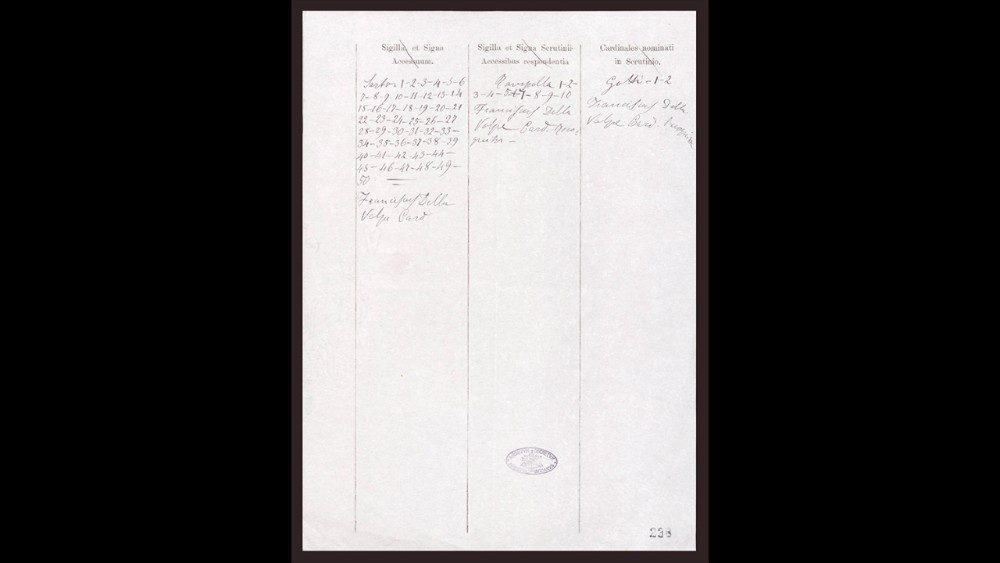 Sigilla et Signa
Accessuum.
Sartor 1-2-3-4-5-6
7-8-9-10-11-12-13-14
15-16-17-18-19-20-21
22-23-24-25-26-27
28-29-30-31-32-33-
34-35-36-37-38-39
40-41-42-43-44-
45-46-47-48-49-
50
Franciscus Della
Volpe Card
Sigilla et Signa Scrutinii
Accessibus respondentia
Rampolla 1-2-
3-4-5-6-7-8-9-10
Franciscus Della
Volpe Card.
Cardinales nominati
in Scrutinio.
Gotti-1-2
Franciscus Della
Volpe Card.